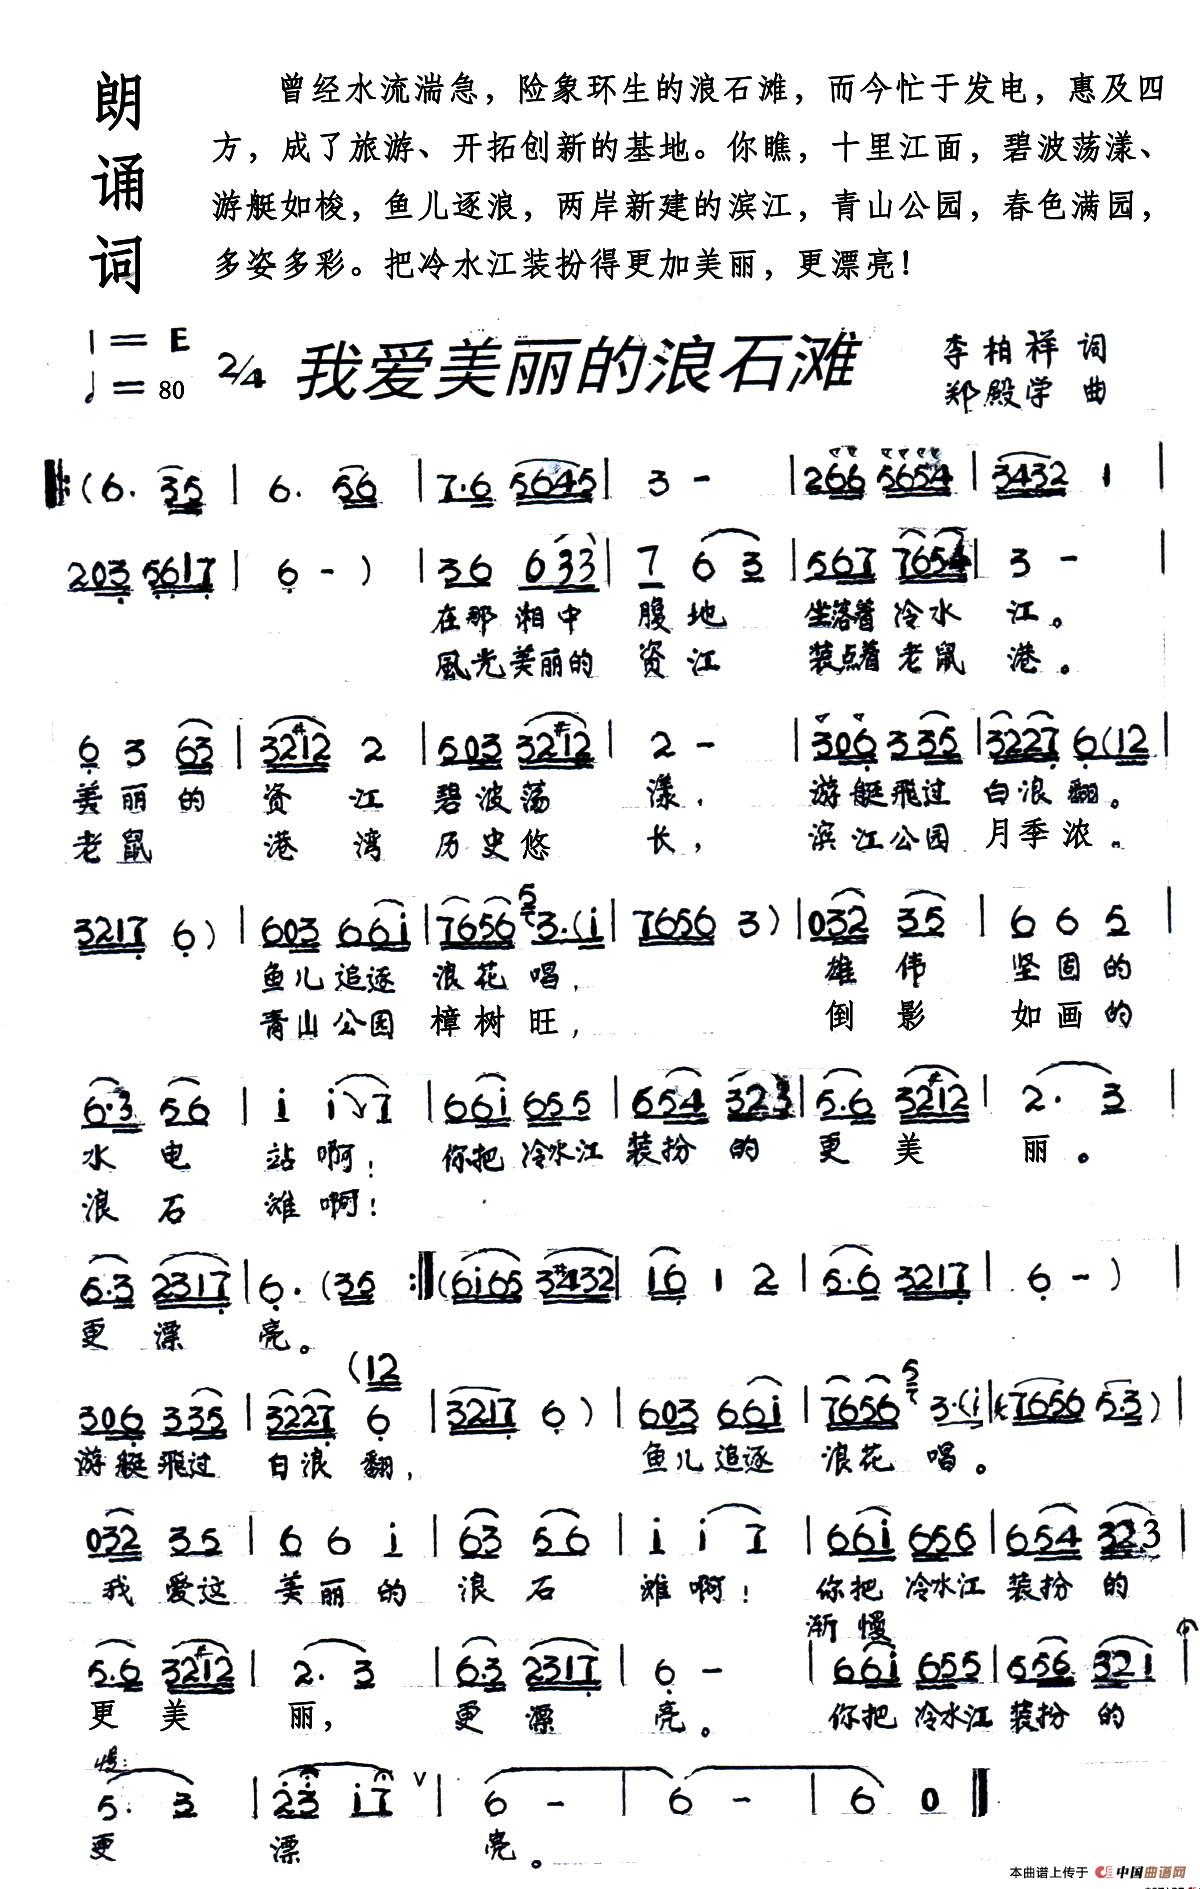 朗诵词
曾经水流湍急，险象环生的浪石滩，而今忙于发电，惠及四
方，成了旅游、开拓创新的基地。你瞧，十里江面，碧波荡漾、
游艇如梭，鱼儿逐浪，两岸新建的滨江，青山公园，春色满园，
多姿多彩。把冷水江装扮得更加美丽，更漂亮！
1=E
♩=80
2/4
我爱美丽的浪石滩
李柏祥 词
郑殿学 曲
(6. 35 | 6. 56 | 7.6 5645 | 3 - | 266 5654 | 3432 1 |
203 5617 | 6 - ) | 36 633 | 7 63 | 567 7654 | 3 - |
在那湘中 腹地 坐落着冷水 江。
風光美丽的 资江 装点着老鼠 港。
6 3 63 | 32#12 2 | 503 32#12 | 2 - | 306 335 | 3227 6(12 |
美丽的 资江 碧波荡 漾， 游艇飛过 白浪翻。
老鼠 港湾 历史悠 长， 滨江公园 月季浓。
3217 6 ) | 603 66i | 7656 3.(i | 7656 3 ) | 032 35 | 6 6 5 |
鱼儿追逐 浪花唱， 雄伟 坚固的
青山公园 樟树旺， 倒影 如画的
6.3 56 | i i7 | 66i 655 | 654 323 | 5.6 32#12 | 2. 3 |
水电 站啊！ 你把冷水江 装扮的 更美 丽。
浪石 滩啊！
5.3 2317 | 6. (35 :| (6i65 3#432 | 16 1 2 | 5.6 3217 | 6 - ) |
更漂 亮。
(12
306 335 | 3227 6 | 3217 6 ) | 603 66i | 7656 3.(i | 7656 53 ) |
游艇飛过 白浪翻， 鱼儿追逐 浪花唱。
032 35 | 6 6 i | 63 56 | i i 7 | 66i 656 | 654 323 |
我爱这 美丽的 浪石 滩啊！ 你把冷水江 装扮的
渐慢
5.6 32#12 | 2. 3 | 6.3 2317 | 6 - | 66i 655 | 556 321 |
更美 丽， 更漂 亮。 你把冷水江 装扮的
慢:
5. 3 | 23 i7 ∨ | 6 - | 6 - | 6 0 ‖
更 漂 亮。
本曲谱上传于 中国曲谱网